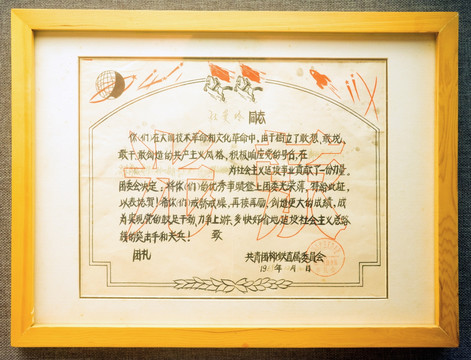 同志
你(们)在大闹技术革命和文化革命中,由于树立了敢想、敢说、
敢干敢创造的共产主义风格,积极响应党的号召,在
为社会主义建设事业贡献了一切力量。
团委会决定:将你(们)的优秀事迹登上团委光荣簿,
以表祝贺!希你(们)戒骄戒躁,再接再励,创造更大的成绩,成
为实现党的鼓足干劲,力争上游,多快好省地建设社会主义总路
线的突击手和尖兵!
致
团礼
共青团柳铁直属委员会
19 年 月 日